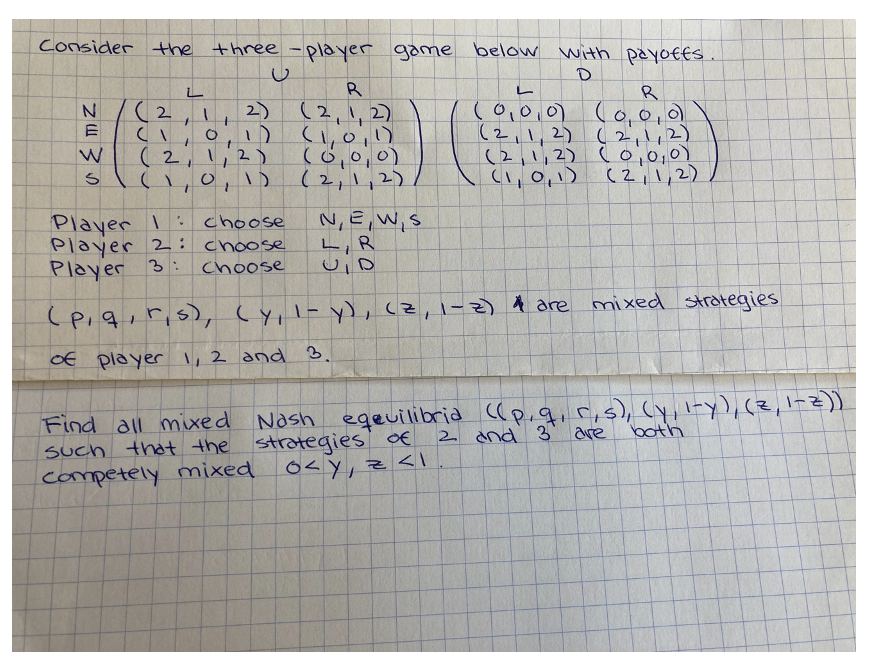 Consider the three-player game below with payoffs.
U D
L R L R
N (2, 1, 2) (2,1,2) (0,0,0) (0,0,0)
E (1, 0, 1) (1,0,1) (2,1,2) (2,1,2)
W (2, 1, 2) (0,0,0) (2,1,2) (0,0,0)
S (1, 0, 1) (2,1,2) (1,0,1) (2,1,2)
Player 1: choose N,E,W,S
Player 2: choose L,R
Player 3: choose U,D
(p,q,r,s), (y,1-y), (z,1-z) are mixed strategies
of player 1,2 and 3.
Find all mixed Nash eqeuilibria ((p,q,r,s),(y,1-y),(z,1-z))
such that the strategies of 2 and 3 are both
competely mixed 0<y, z<1.